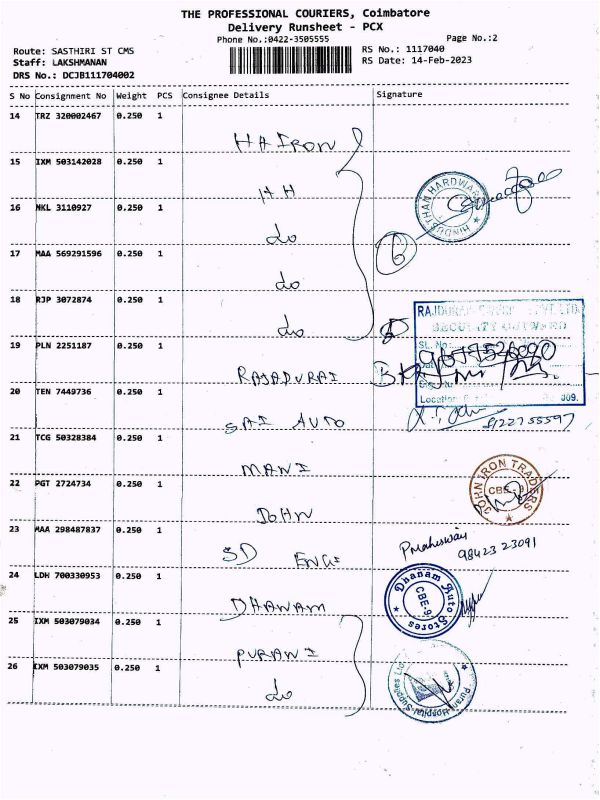 THE PROFESSIONAL COURIERS, Coimbatore
Delivery Runsheet - PCX
Phone No.:0422-3505555
Page No.:2
Route: SASTHIRI ST CMS
RS No.: 1117040
Staff: LAKSHMANAN
RS Date: 14-Feb-2023
DRS No.: DCJB111704002
S No Consignment No Weight PCS Consignee Details Signature
14 TRZ 320002467 0.250 1
HA IRON
15 IXM 503142028 0.250 1
HH
HINDUSTHAN HARDWARE
16 NKL 3110927 0.250 1
do
17 MAA 569291596 0.250 1
do
18 RJP 3072874 0.250 1
do
RAJDURAI
SECURITY
19 PLN 2251187 0.250 1
RAJADURAI
Location:
20 TEN 7449736 0.250 1
SAI AUTO
8122755597
21 TCG 50328384 0.250 1
MANI
22 PGT 2724734 0.250 1
JOHN
JOHN IRON TRADERS
CBE - 9
23 MAA 298487837 0.250 1
SD ENGI
98423 23091
24 LDH 700330953 0.250 1
DHANAM
Dhanam Auto Stores
CBE-9
25 IXM 503079034 0.250 1
PURANI
26 IXM 503079035 0.250 1
do
Purani Hospital Supplies Ltd